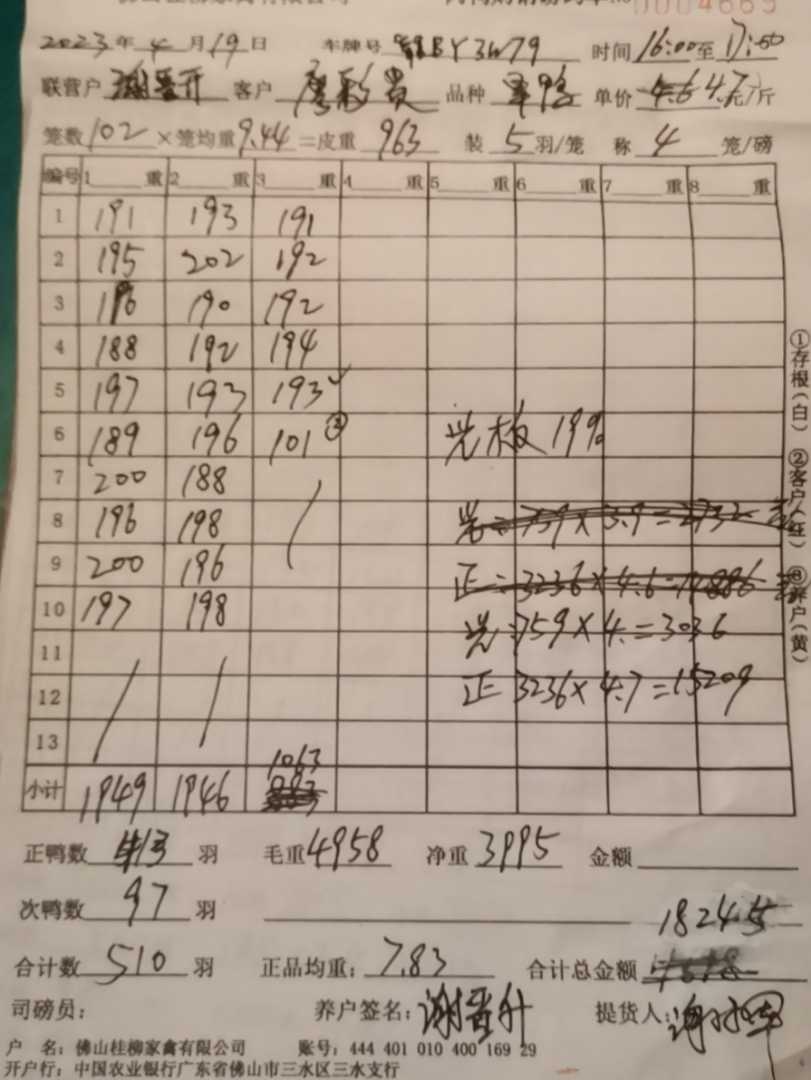 佛山桂柳家禽有限公司 0004669
2023年4月19日 车牌号 BY3W79 时间16:00至17:50
联营户 谢晋升 客户 廖彩贵 品种 单价 4.6 4.7元/斤
笼数102×笼均重9.44=皮重963 装5羽/笼 称4笼/磅
编号 1 重 2 重 3 重 4 重 5 重 6 重 7 重 8 重
1 191 193 191
2 195 202 192
3 196 190 192
4 188 192 194
5 197 193 193✓
6 189 196 101② 光板19%
7 200 188
8 196 198 光=759×3.9=2732
9 200 196 正=3236×4.6=14886
10 197 198 光:759×4.=3036
11
12 正 3236×4.7=15209
13 1063
小计 1949 1946
正鸭数 413 羽 毛重4958 净重3995 金额
次鸭数 97 羽
18245
合计数 510 羽 正品均重:7.83 合计总金额
司磅员: 养户签名:谢晋升 提货人:
户 名:佛山桂柳家禽有限公司 账号:444 401 010 400 169 29
开户行:中国农业银行广东省佛山市三水区三水支行
①存根(白) ②客户(红) ③养户(黄)